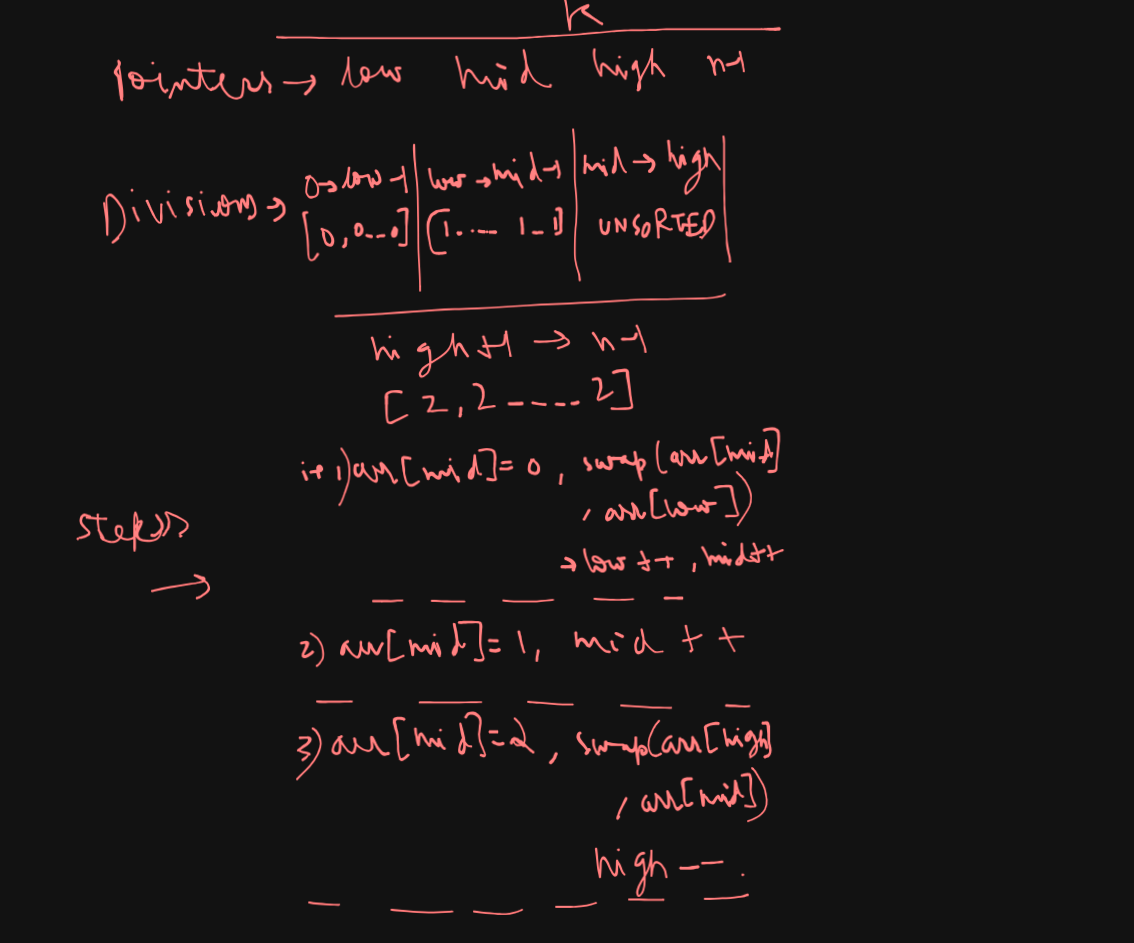 Pointers → low mid high n-1
Divisions → 0→low-1 | low→mid-1 | mid → high |
[0,0--0] | [1---- 1-1] | UNSORTED |
high+1 → n-1
[2,2----- 2]
1) arr[mid]= 0, swap(arr[mid]
, arr[low])
Steps
→ low++, mid++
→
2) arr[mid]= 1, mid ++
3) arr[mid]=2, swap(arr[high]
, arr[mid])
high--.